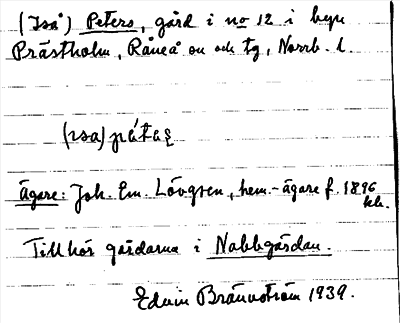 (Isá) Peters, gård i no 12 i byn
Prästholm, Råneå sn och tg, Norrb. l.
(ısa) pát̄aş
Ägare: Joh. Em. Lövgren, hem.-ägare f. 1896
Tillhör gårdarna i Nabbgårdan.
Edvin Brännström 1939.